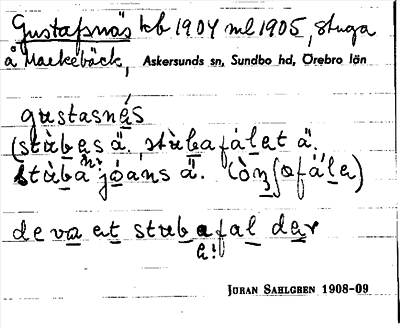 Gustafsnäs kb 1904 ml 1905, stuga
å Markebäck, Askersunds sn, Sundbo hd, Örebro län
gustasnés
(stùbes ä. stùbafálet ä.
stùba jóans ä.
de va et stubafal der
a!
JÖRAN SAHLGREN 1908-09